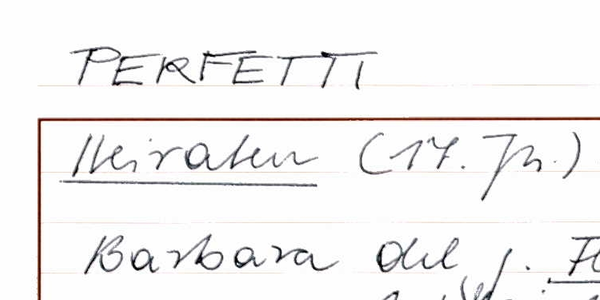 PERFETTI
Heiraten (17. Jh.)
Barbara del